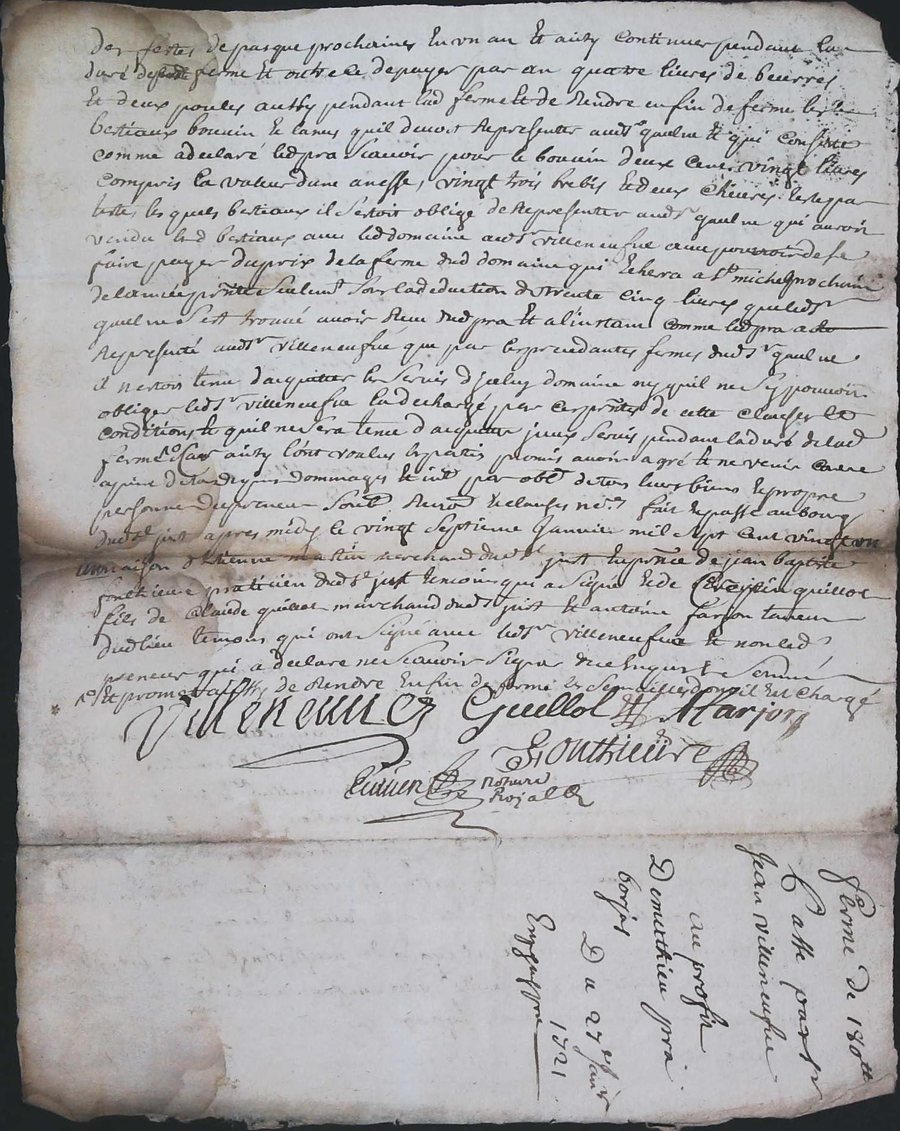 des festes de pasque prochaines En un an Et ainsy continuer pendant la
duré de ferme Et outre ce de payer par an quattre livres de beurres
Et deux poules aussy pendant lad ferme Et de Rendre en fin de ferme les
bestiaux bouuin Et lanus quil devoit Representer aud Sr gaulne Et qui consiste
comme a declaré led pra scauoir pour le bouuin deux cens vingt liures
compris la valeur dune anesse, vingt trois brebis Et deux cheures
teste, les quels bestiaux il sestoit obligé de Representer aud Sr gaulne qui auroit
vendu lesd bestiaux auec led domaine aud Sr villeneufue auec pouuoir de se
faire payer du prix de la ferme dud domaine qui Echera a St michel prochaine
de lannée pnte seulemt sous la deduction de trente cinq liures que led Sr
gaulne sest trouué auoir Reeu dud pra Et a linstant comme led pra a
Representé aud Sr villeneufue que par les precedantes fermes dud Sr gaulne
il nestoit tenu dacquitter les seruis dicelluy domaine ny quil ne sy pouuoit
obliger led Sr villeneufue la dechargé par ces pntes de cette clause Et
conditions Et quil ne sera tenu dacquitter iceux seruis pendant la duré de lad
ferme car ainsy lont voulus les parties promis auoir agré Et ne venir contre
a peine de tous depens dommages Et int par obl de tous leurs biens Et propre
personne du preneur soub Renon Et clauses fait Et passé au bourg
dud St just apres midy le vingt septieme januier mil sept cent vingt un
maison dEtienne martin marchand dud St just En pnce de jean baptiste
fonthieure pratticien dud St just temoins qui a signé Et de quillot
fils de Claude quillot marchand dud St just Et antoine farjon tanneur
dud lieu temoins qui ont signé auec led Sr villeneufue Et non led
preneur qui a declaré ne scauoir signer de ce Enquis Et sommé
Et promet aussy de Rendre En fin de ferme les semailles dont il Est chargé
Villeneuue Guillot A farjon
Fonthieure
notaire
Royalle
ferme de 180tt
Passé par Sr
Jean villeneufue
au profit
De mathieu pra
borjas
Du 27e janr
1721